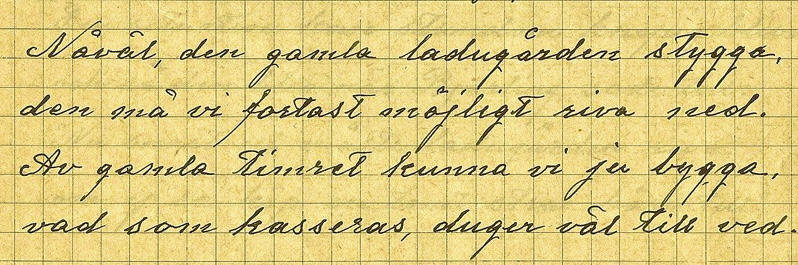 Nåväl, den gamla ladugården stygga,
den må vi fortast möjligt riva ned.
Av gamla timret kunna vi ju bygga,
vad som kasseras, duger väl till ved.